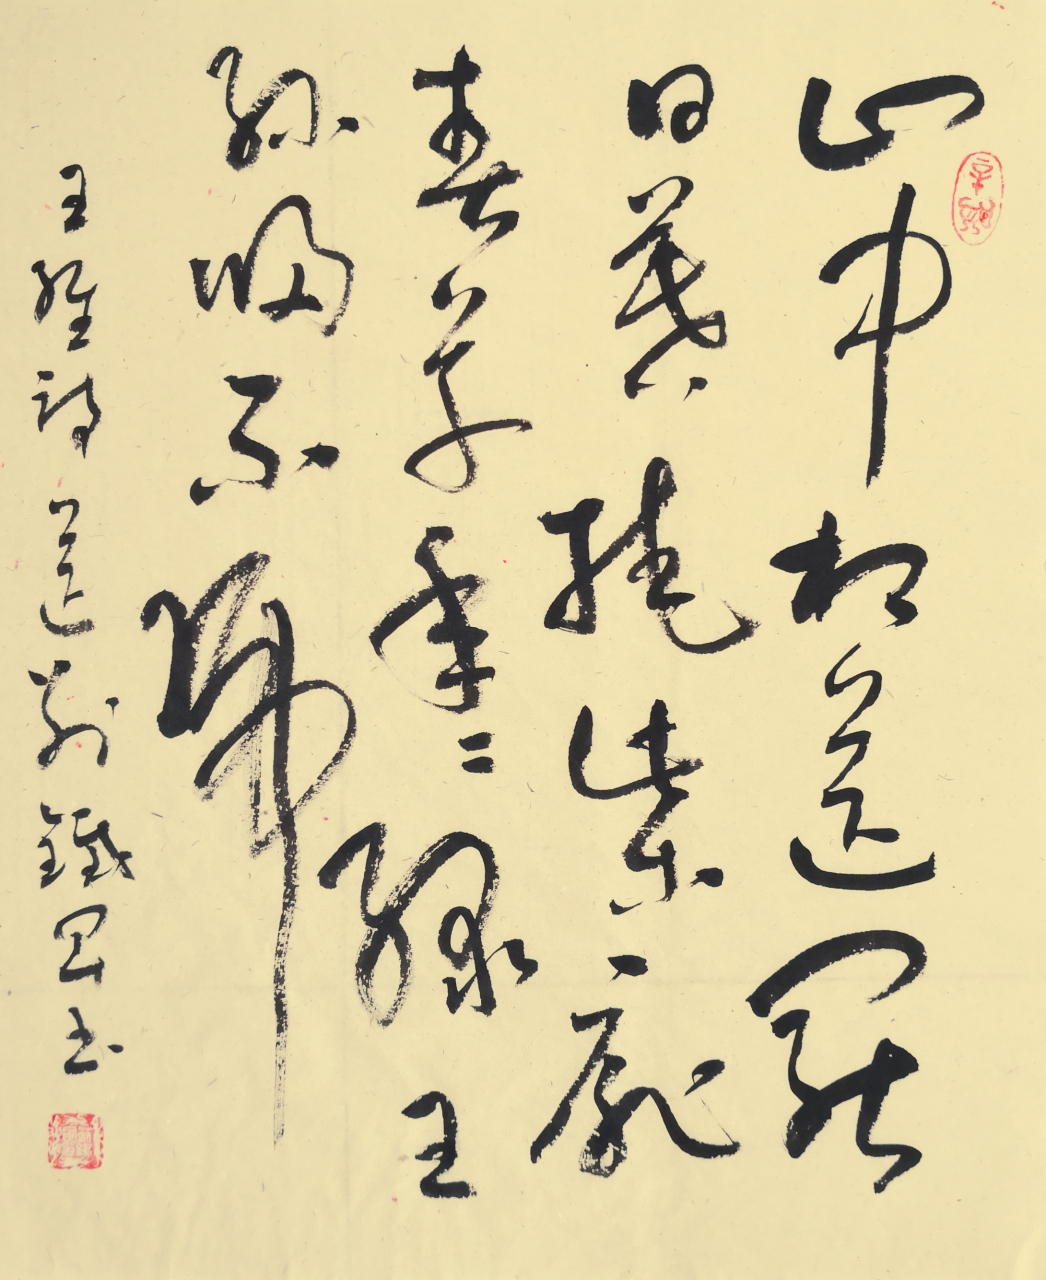 山中相送罷
日暮掩柴扉
春草年々綠王
孫歸不歸
王維詩送別鐵書